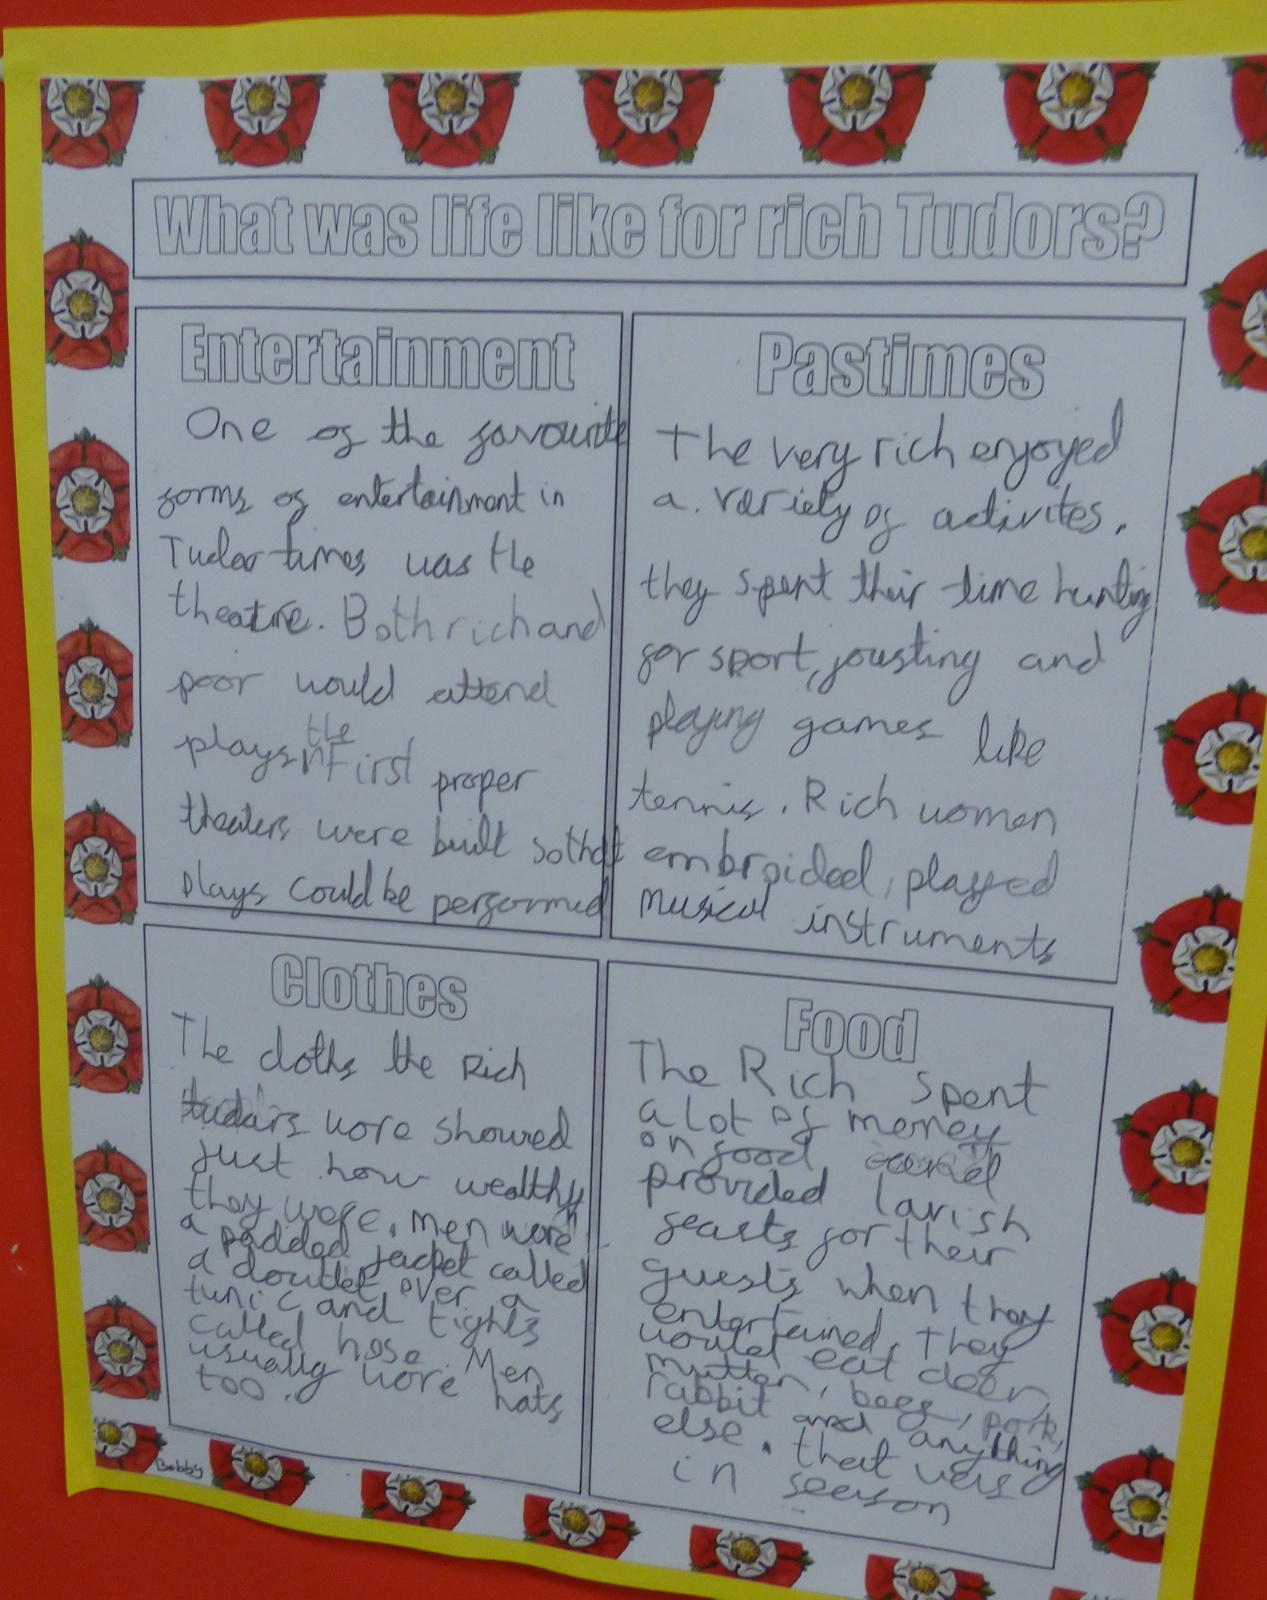 What was life like for rich Tudors?
Entertainment
One of the favourite
forms of entertainment in
Tudor times was the
theatre. Both rich and
poor would attend
plays the First proper
theaters were built so that
plays could be performed
Pastimes
The very rich enjoyed
a. variety of activites.
they spent their time hunting
for sport, jousting and
playing games like
tennis. Rich women
embroided, played
musical instruments
Clothes
The cloths the Rich
tudars wore showed
just how wealthy
they were. men wore
a padded jacket called
a doublet over a
tunic, and tights
called hose. Men
usually wore hats
too.
Food
The Rich spent
a lot of money
on food
provided lavish
feasts for their
guests when they
entertained. They
would eat deer,
mutton, beef, pork,
rabbit and anything
else. that was
in season
Bobby